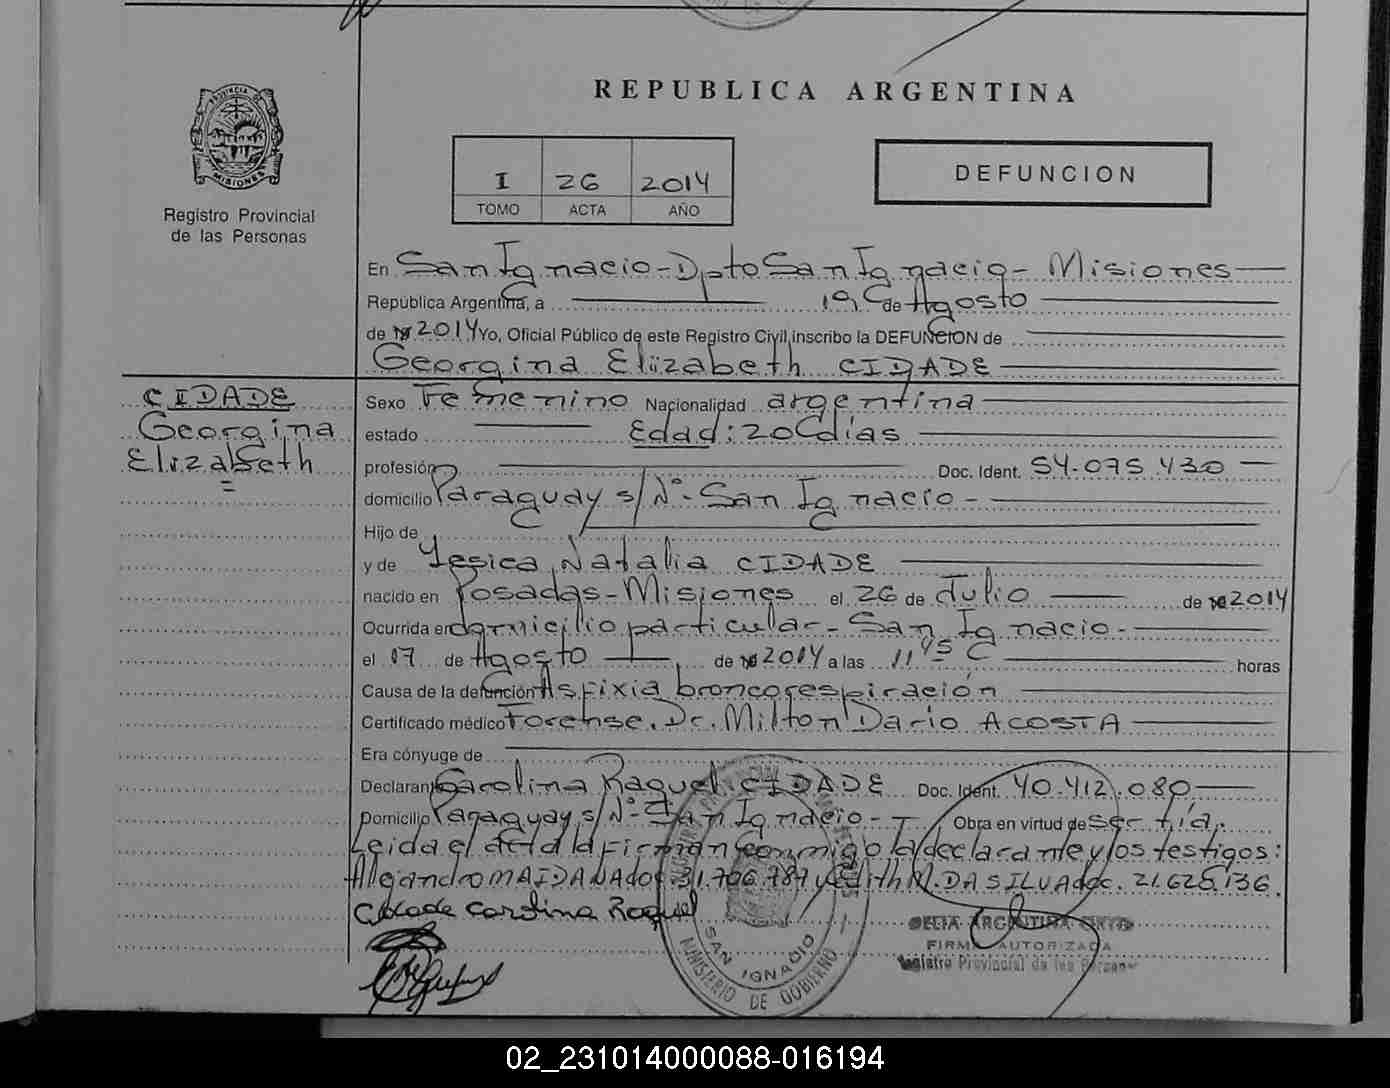 REPUBLICA ARGENTINA
PROVINCIA DE
MISIONES
Registro Provincial
de las Personas
I 26 2014
TOMO ACTA AÑO
DEFUNCION
En San Ignacio - Dpto San Ignacio - Misiones
República Argentina, a 19 de Agosto
de 2014 Yo, Oficial Público de este Registro Civil, inscribo la DEFUNCION de
Georgina Elizabeth CIDADE
CIDADE
Georgina
Elizabeth
Sexo Femenino Nacionalidad argentina
estado Edad: 20 días
profesión Doc. Ident. 54.075.430
domicilio Paraguay s/Nº - San Ignacio -
Hijo de
y de Yesica Natalia CIDADE
nacido en Posadas - Misiones el 26 de Julio de 2014
Ocurrida en domicilio particular - San Ignacio -
el 17 de Agosto de 2014 a las 11 45 horas
Causa de la defunción Asfixia broncorespiración
Certificado médico Forense. Dr. Milton Dario ACOSTA
Era cónyuge de
Declarante Carolina Raquel CIDADE Doc. Ident. 40.412.080
Domicilio Paraguay s/Nº - San Ignacio - Obra en virtud de ser tía.
Leida el acta la firman conmigo la declarante y los testigos:
Alejandro MAIDANA doc. 31.706.787 y Edith M. DA SILVA doc. 21.625.136.
Cidade Carolina Raquel
SAN IGNACIO
MINISTERIO DE GOBIERNO
FIRMA AUTORIZADA
Registro Provincial de las Personas
02_231014000088-016194